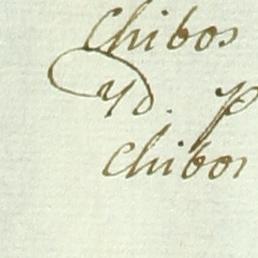 chibos
Yd. P
chibos